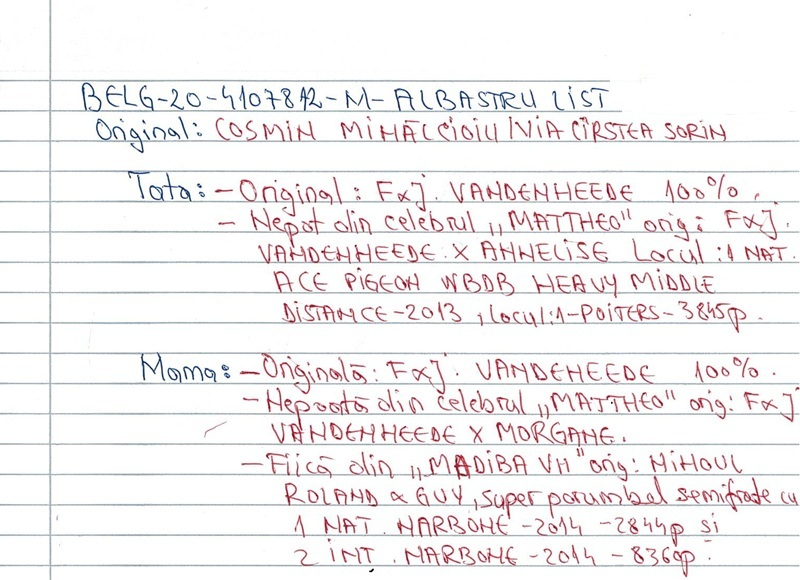 BELG-20-4107812-M-ALBASTRU LIST
Original: COSMIN MIHĂLCIOIU/VIA CÎRSTEA SORIN
Tata: - Original: F&J. VANDENHEEDE 100%.
- Nepot din celebrul „MATTHEO" orig: F&J.
VANDENHEEDE X ANNELISE Locul:1 NAT.
ACE PIGEON WBDB HEAVY MIDDLE
DISTANCE-2013, Locul:1-POITERS-3845p.
Mama: - Originală: F&J. VANDEHEEDE 100%.
- Nepoată din celebrul „MATTHEO" orig: F&J
VANDENHEEDE X MORGANE.
- Fiică din „MADIBA VH" orig: NIHOUL
ROLAND & GUY, super porumbel semifrate cu
1 NAT. NARBONE -2014 -2844p și
2 INT. NARBONE -2014 -8360p.